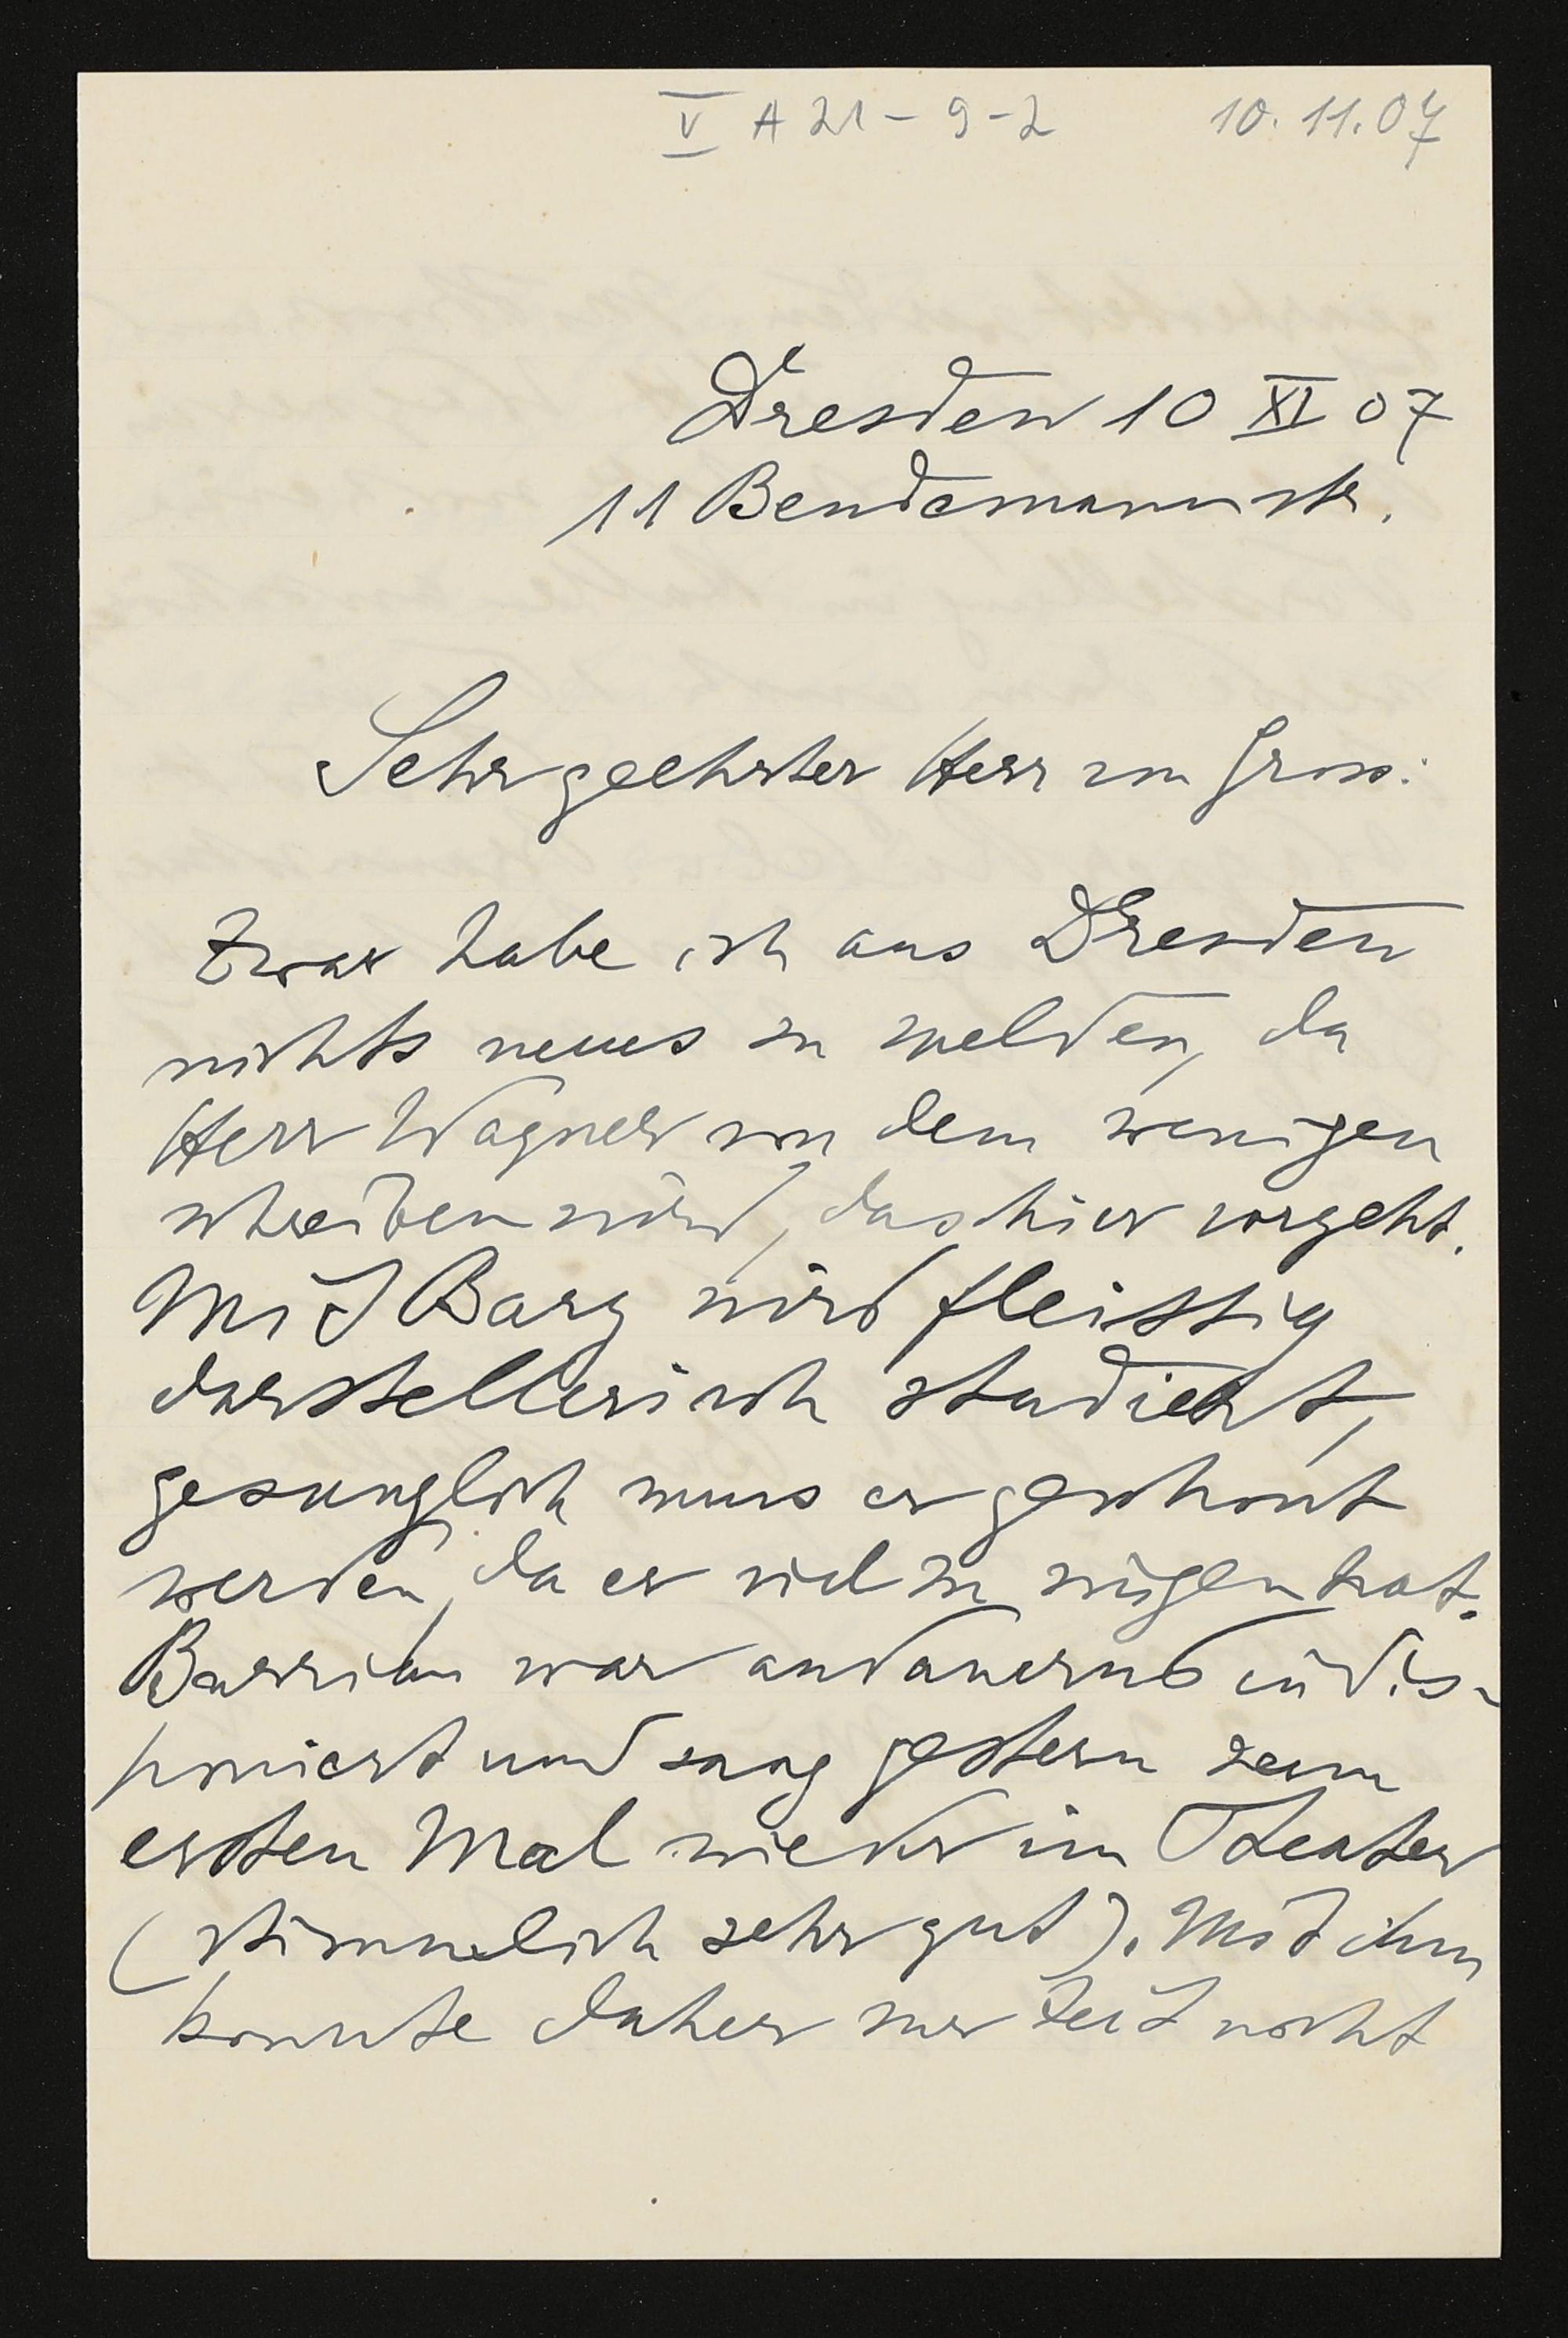 V A 21 - 9 - 2 10. 11. 07
Dresden 10 XI 07
11 Bendemannstr.
Sehr geehrter Herr von Gross:
Zwar habe ich aus Dresden
nichts neues zu melden, da
Herr Wagner von dem wenigen
schreiben wird, das hier vorgeht.
Mit Bary wird fleissig
darstellerisch studiert,
gesanglich muss er geschont
werden, da er viel zu singen hat.
Burrian war andauernd indis-
poniert und sang gestern zum
ersten Mal wieder im Theater
(stimmlich sehr gut). Mit ihm
konnte daher zur Zeit nicht